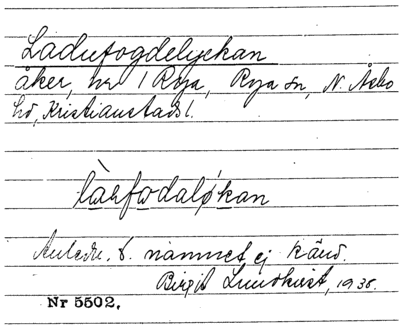 Ladufogdelyckan
åker, nr 1 Rya, Rya sn, N. Åsbo
hd, Kristianstads l.
làrfωdaløkan
Anledn. t. namnet ej känd.
Birgit Lundkvist, 1935.
Nr 5502.